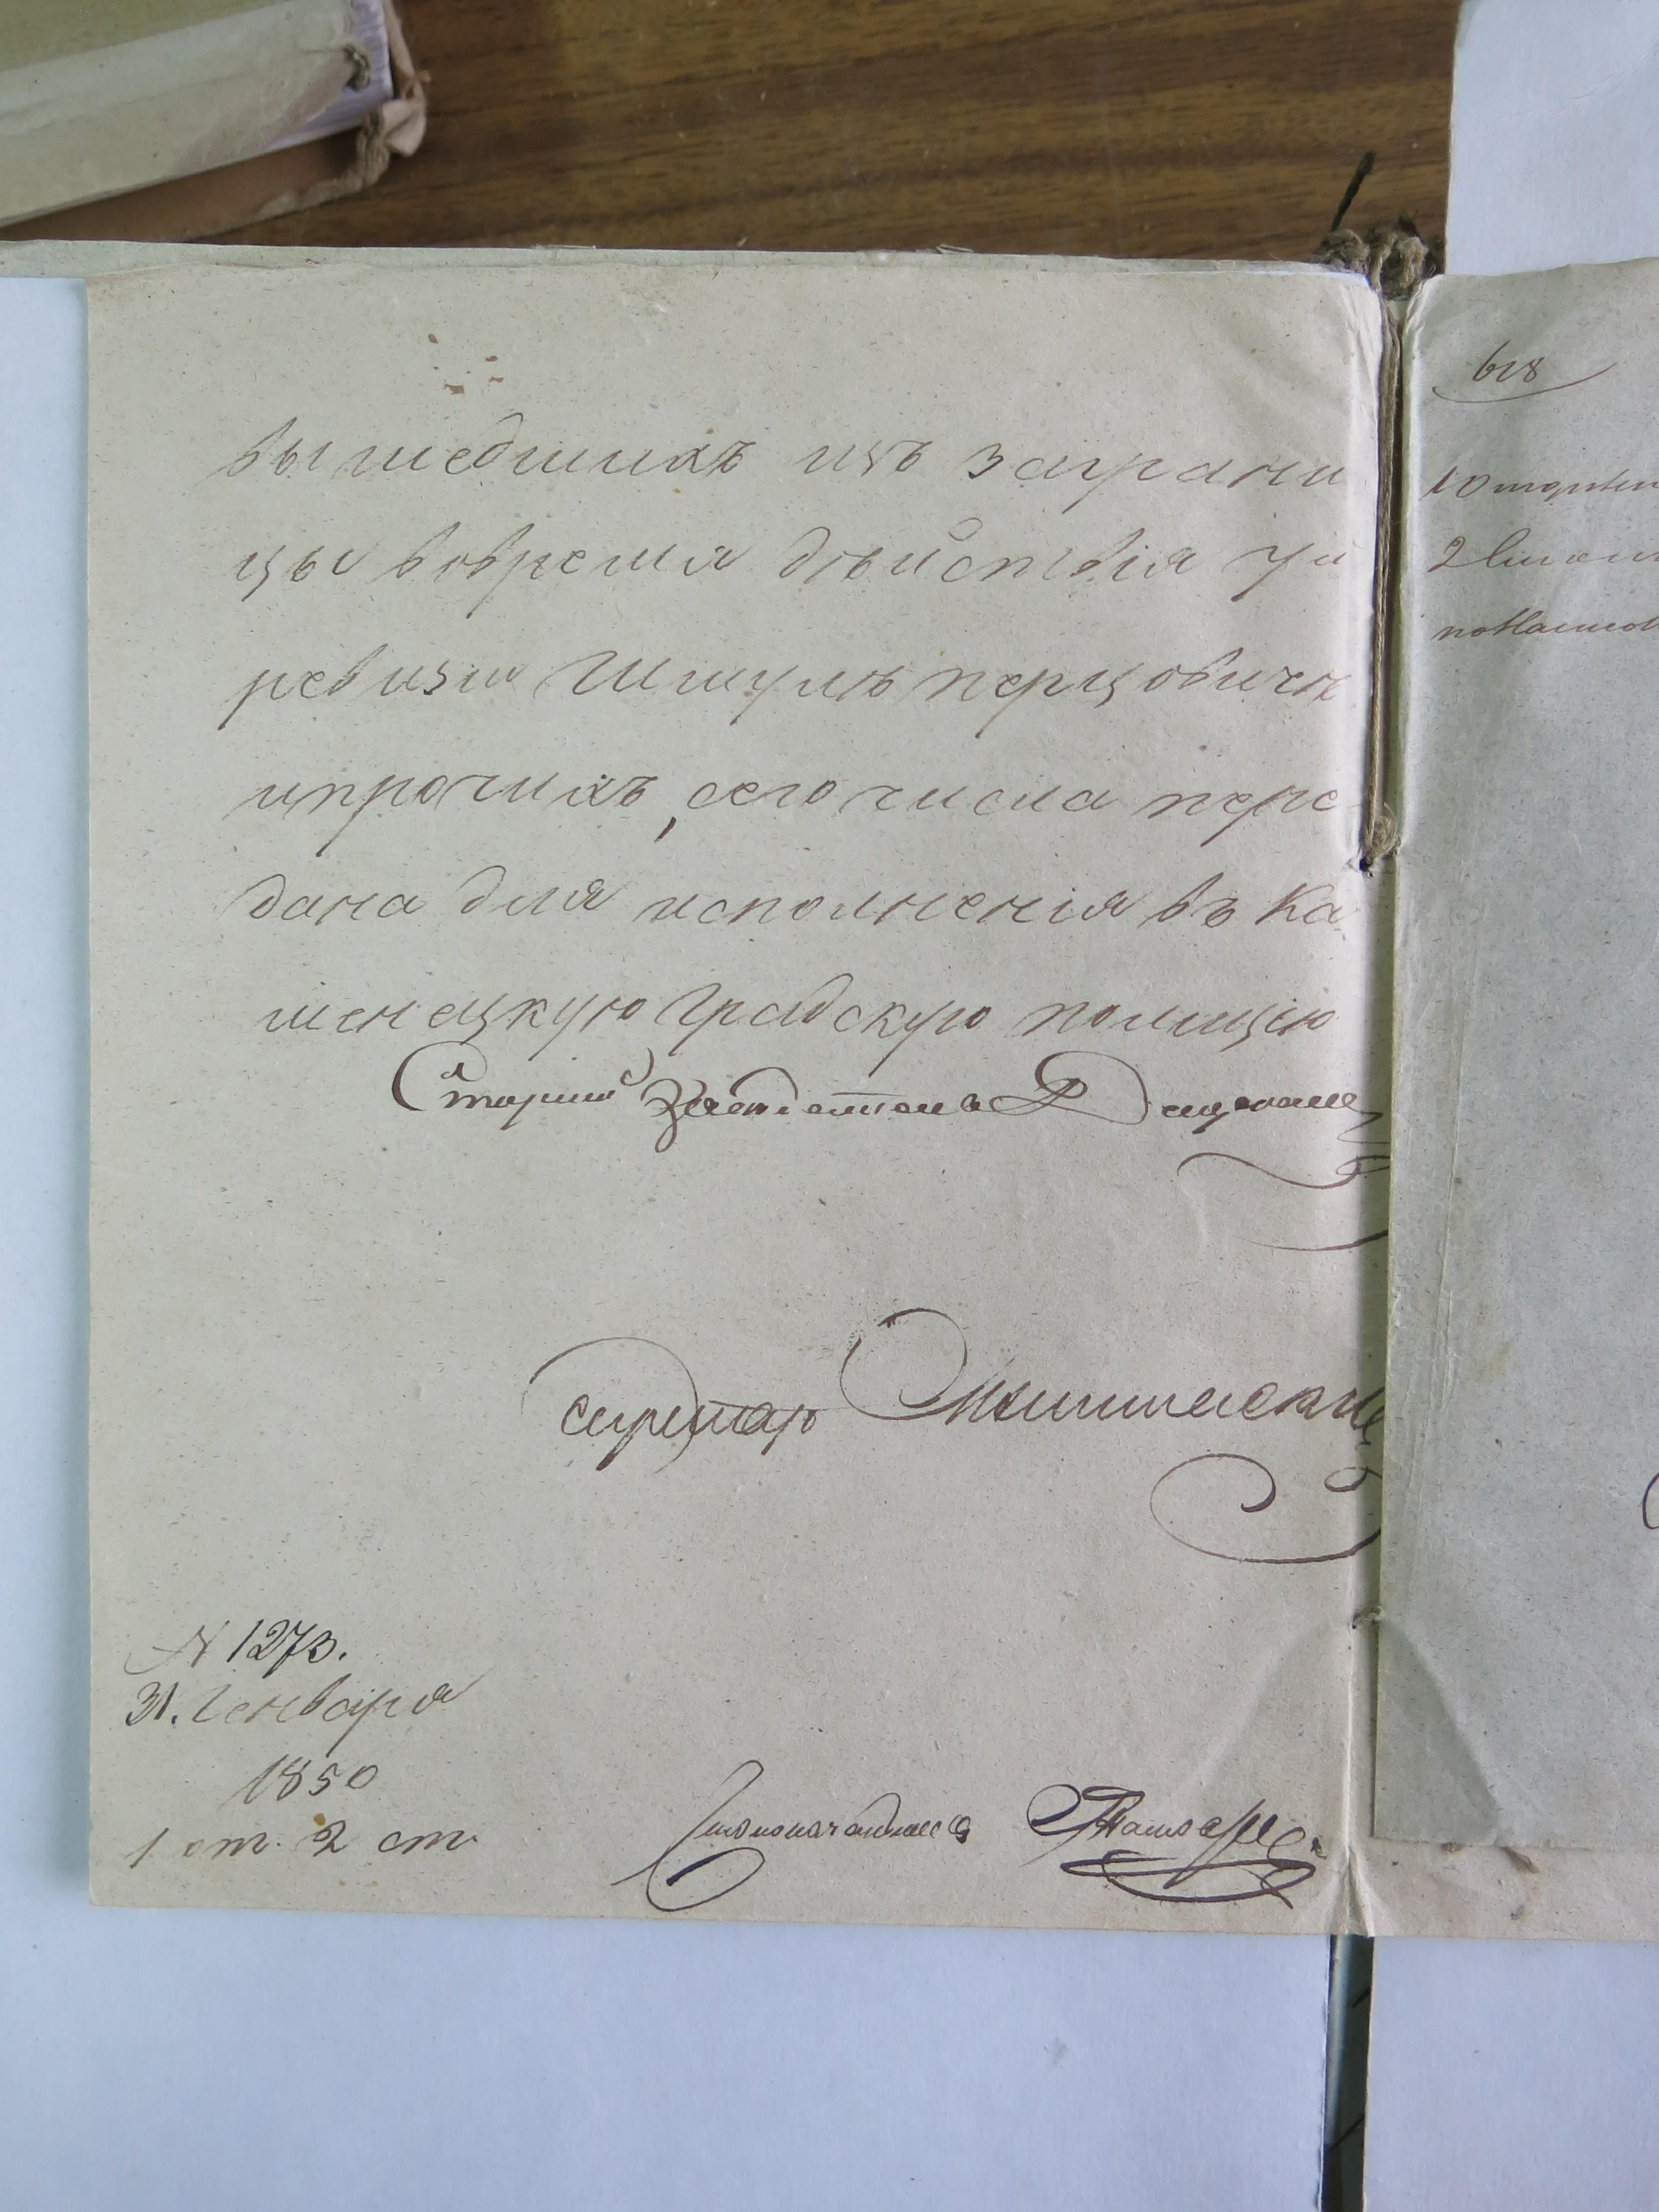 вышедшихъ изъ заграни
цы вовремя дѣйствія 7й
ревизіи Шмулѣ Перцовичѣ
ипрочихъ, сего числа пере
дана для исполненія въ Ка
менецкую Градскую полицію
Старшій Засѣдатель
Секретарь
N 1273.
31. Генваря
1850
1 от. 2 ст.
Столоначальникъ
618